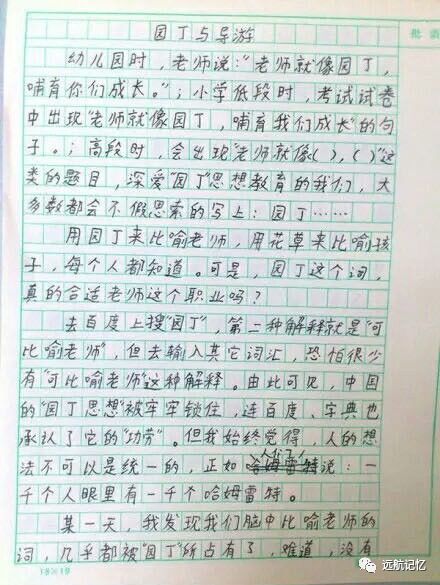 园丁与导游
幼儿园时，老师说："老师就像园丁，
哺育你们成长。"；小学低段时，考试试卷
中出现"老师就像园丁，哺育我们成长"的句
子。；高段时，会出现"老师就像( )，( )"这
类的题目，深爱"园丁"思想教育的我们，大
多数都会不假思索的写上：园丁……
用园丁来比喻老师，用花草来比喻孩
子，每个人都知道。可是，园丁这个词，
真的合适老师这个职业吗？
去百度上搜"园丁"，第二种解释就是"可
比喻老师"，但去输入其它词汇，恐怕很少
有"可比喻老师"这种解释。由此可见，中国
的"园丁思想"被牢牢锁住，连百度、字典也
承认了它的"功劳"。但我始终觉得，人的想
人们了！
法不可以是统一的，正如哈姆雷特说：一
千个人眼里有一千个哈姆雷特。
某一天，我发现我们脑中比喻老师的
词，几乎都被"园丁"所占有了，难道，没有
18×19
批
远航记忆